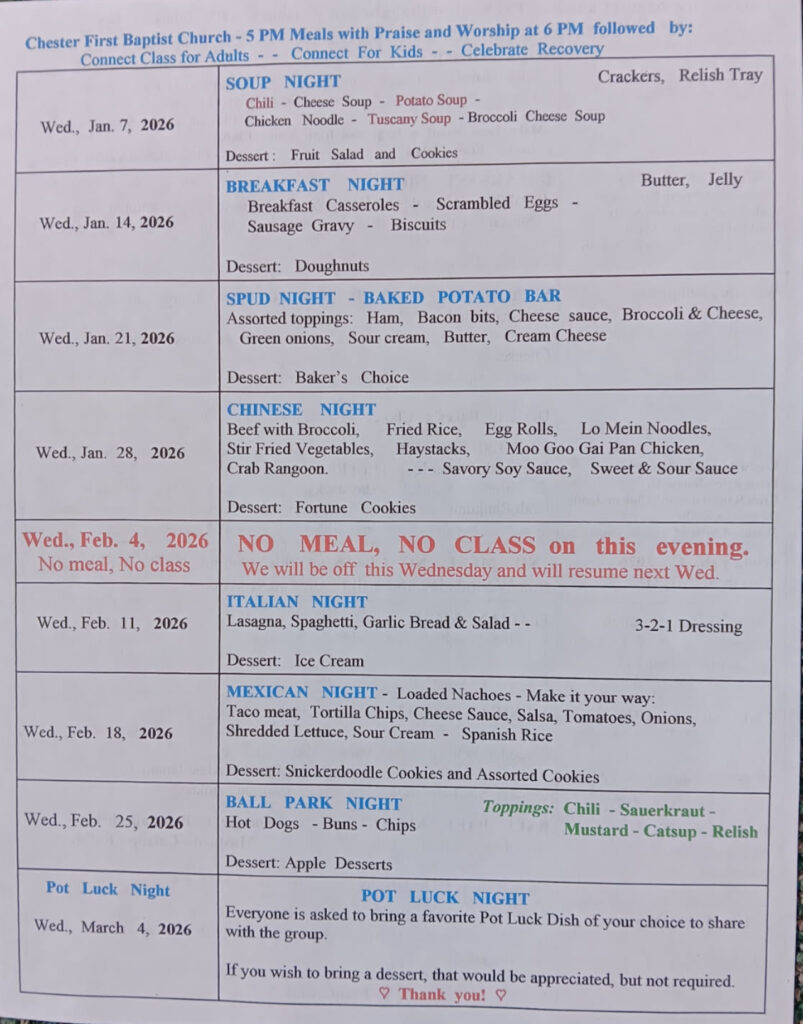 Chester First Baptist Church - 5 PM Meals with Praise and Worship at 6 PM followed by:
Connect Class for Adults - - Connect For Kids - - Celebrate Recovery
Wed., Jan. 7, 2026
SOUP NIGHT Crackers, Relish Tray
Chili - Cheese Soup - Potato Soup -
Chicken Noodle - Tuscany Soup - Broccoli Cheese Soup
Dessert : Fruit Salad and Cookies
Wed., Jan. 14, 2026
BREAKFAST NIGHT Butter, Jelly
Breakfast Casseroles - Scrambled Eggs -
Sausage Gravy - Biscuits
Dessert: Doughnuts
Wed., Jan. 21, 2026
SPUD NIGHT - BAKED POTATO BAR
Assorted toppings: Ham, Bacon bits, Cheese sauce, Broccoli & Cheese,
Green onions, Sour cream, Butter, Cream Cheese
Dessert: Baker's Choice
Wed., Jan. 28, 2026
CHINESE NIGHT
Beef with Broccoli, Fried Rice, Egg Rolls, Lo Mein Noodles,
Stir Fried Vegetables, Haystacks, Moo Goo Gai Pan Chicken,
Crab Rangoon. - - - Savory Soy Sauce, Sweet & Sour Sauce
Dessert: Fortune Cookies
Wed., Feb. 4, 2026
No meal, No class
NO MEAL, NO CLASS on this evening.
We will be off this Wednesday and will resume next Wed.
Wed., Feb. 11, 2026
ITALIAN NIGHT
Lasagna, Spaghetti, Garlic Bread & Salad - - 3-2-1 Dressing
Dessert: Ice Cream
Wed., Feb. 18, 2026
MEXICAN NIGHT - Loaded Nachoes - Make it your way:
Taco meat, Tortilla Chips, Cheese Sauce, Salsa, Tomatoes, Onions,
Shredded Lettuce, Sour Cream - Spanish Rice
Dessert: Snickerdoodle Cookies and Assorted Cookies
Wed., Feb. 25, 2026
BALL PARK NIGHT Toppings: Chili - Sauerkraut -
Hot Dogs - Buns - Chips Mustard - Catsup - Relish
Dessert: Apple Desserts
Pot Luck Night
Wed., March 4, 2026
POT LUCK NIGHT
Everyone is asked to bring a favorite Pot Luck Dish of your choice to share
with the group.
If you wish to bring a dessert, that would be appreciated, but not required.
♡ Thank you! ♡